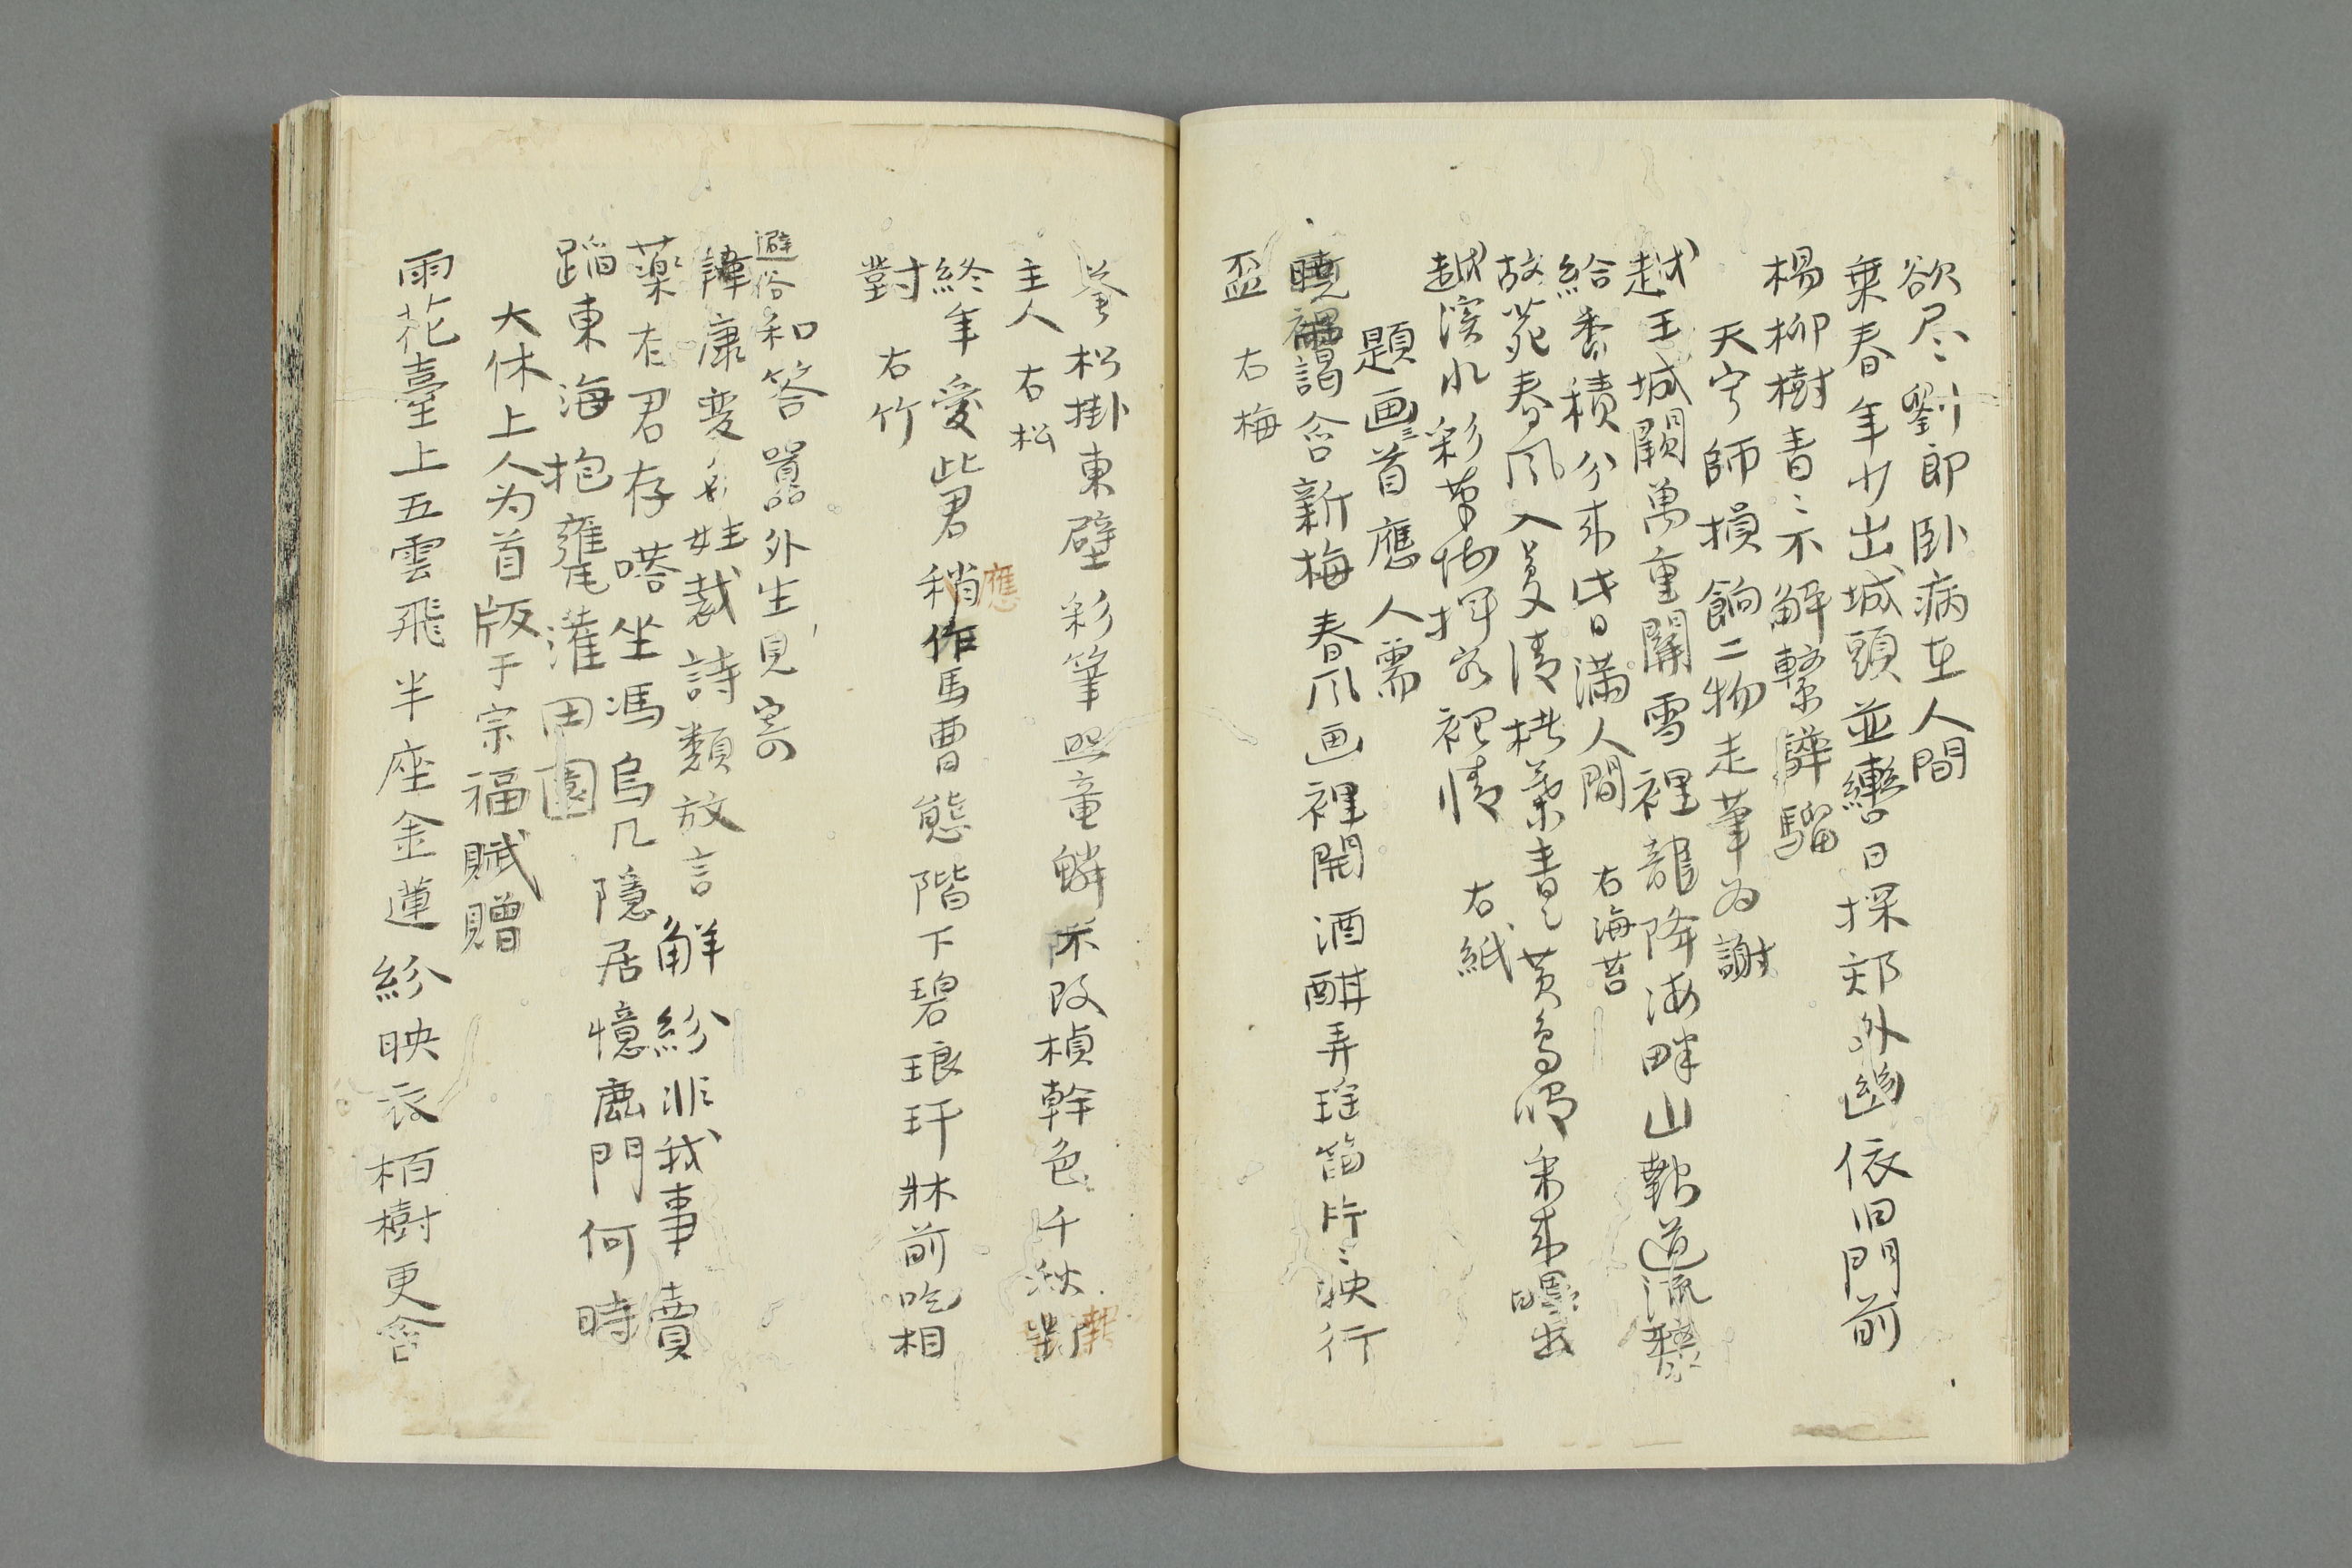 欲尽劉郎卧病在人間
乗春年少出城頭並轡日探郊外幽依旧門前
楊柳樹青〻不解繋驊騮
天宁師損餉二物走筆为謝
越王城闕萬重關雪裡龍降海畔山鞋道流
給香積分来昔日満人間 右海苔
故苑春風入夢清 葉書〻黄鳥鳴来
越溪水彩 裡情 右紙
題画三首應人需
暁 謁含新梅春風画裡開酒酣弄瑶笛片〻映行
盃 右梅
参松掛東壁彩筆 竜鱗不改楨幹色千秋
主人 右松
終年愛此君稍作馬曹態階下碧琅玕牀前吃相
對 右竹
避俗和答囂外生見寄
諱康変姓裁詩類放言觧紛非我事賣
薬有君存嗒坐馮烏几隠居憶鹿門何時
蹈東海抱甕灌田園
大休上人为首版于宗福賦贈
雨花臺上五雲飛半座金蓮紛映衣栢樹更含